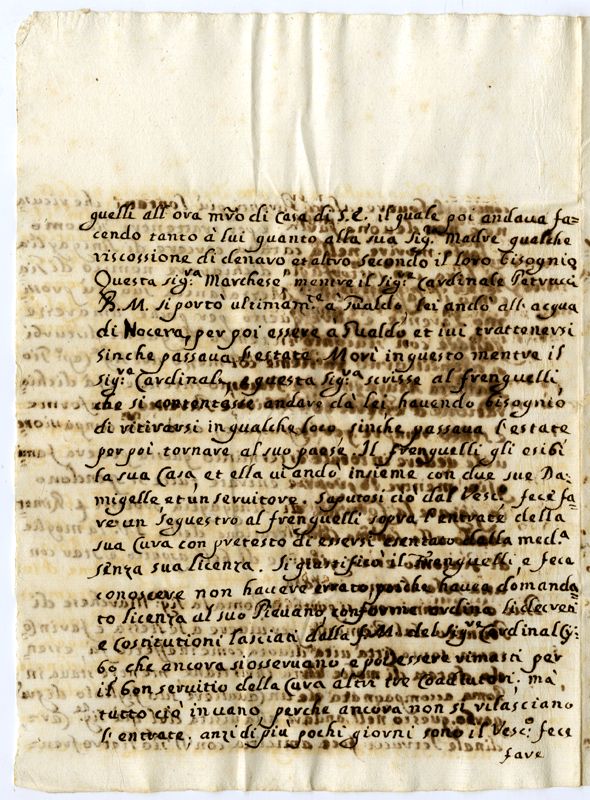 guelli all'ora mro di Casa di S.E. il quale poi andava fa=
cendo tanto à lui quanto alla sua Sig.ra Madre qualche
riscossione di denaro et altro secondo il loro bisognio
Questa Sig.ra Marchesa, mentre il Sig.r Cardinale Petrucci
B.M. si portò ultimam.te a Gualdo, lei andò all'acqua
di Nocera, per poi essere a Gualdo et ivi trattenersi
sinche passava l'estate. Morì in questo mentre il
Sig.r Cardinale, e questa Sig.ra scrisse al frenguelli
che si contentasse andare dà lei havendo bisognio
di ritirarsi in qualche loco, sinche passava l'estate
per poi tornare al suo paese. Il frenguelli gli esibì
la sua Casa, et ella vi andò insieme con due sue Da:
migelle et un servitore. Saputosi ciò dal Vesc.o fece fa=
re un sequestro al frenguelli sopra l'entrate della
sua Cura con pretesto di essersi dalla med.a
senza sua licenza. Si giustificò il frenguelli, e fece
conoscere non havere errato, poiche havea domanda
to licenza al suo Pievano conforme ordina li decreti
e Costitutioni lasciati dalla B.M. del Sig.r Cardinal Cy:
bo che ancora si osservano e poi essere rimasti per
il bon servitio della Cura altri tre Coadiutori: mà
tutto ciò in vano, perche ancora non si rilasciano
l'entrate, anzi di più pochi giorni sono il Vesc.o fece
fare